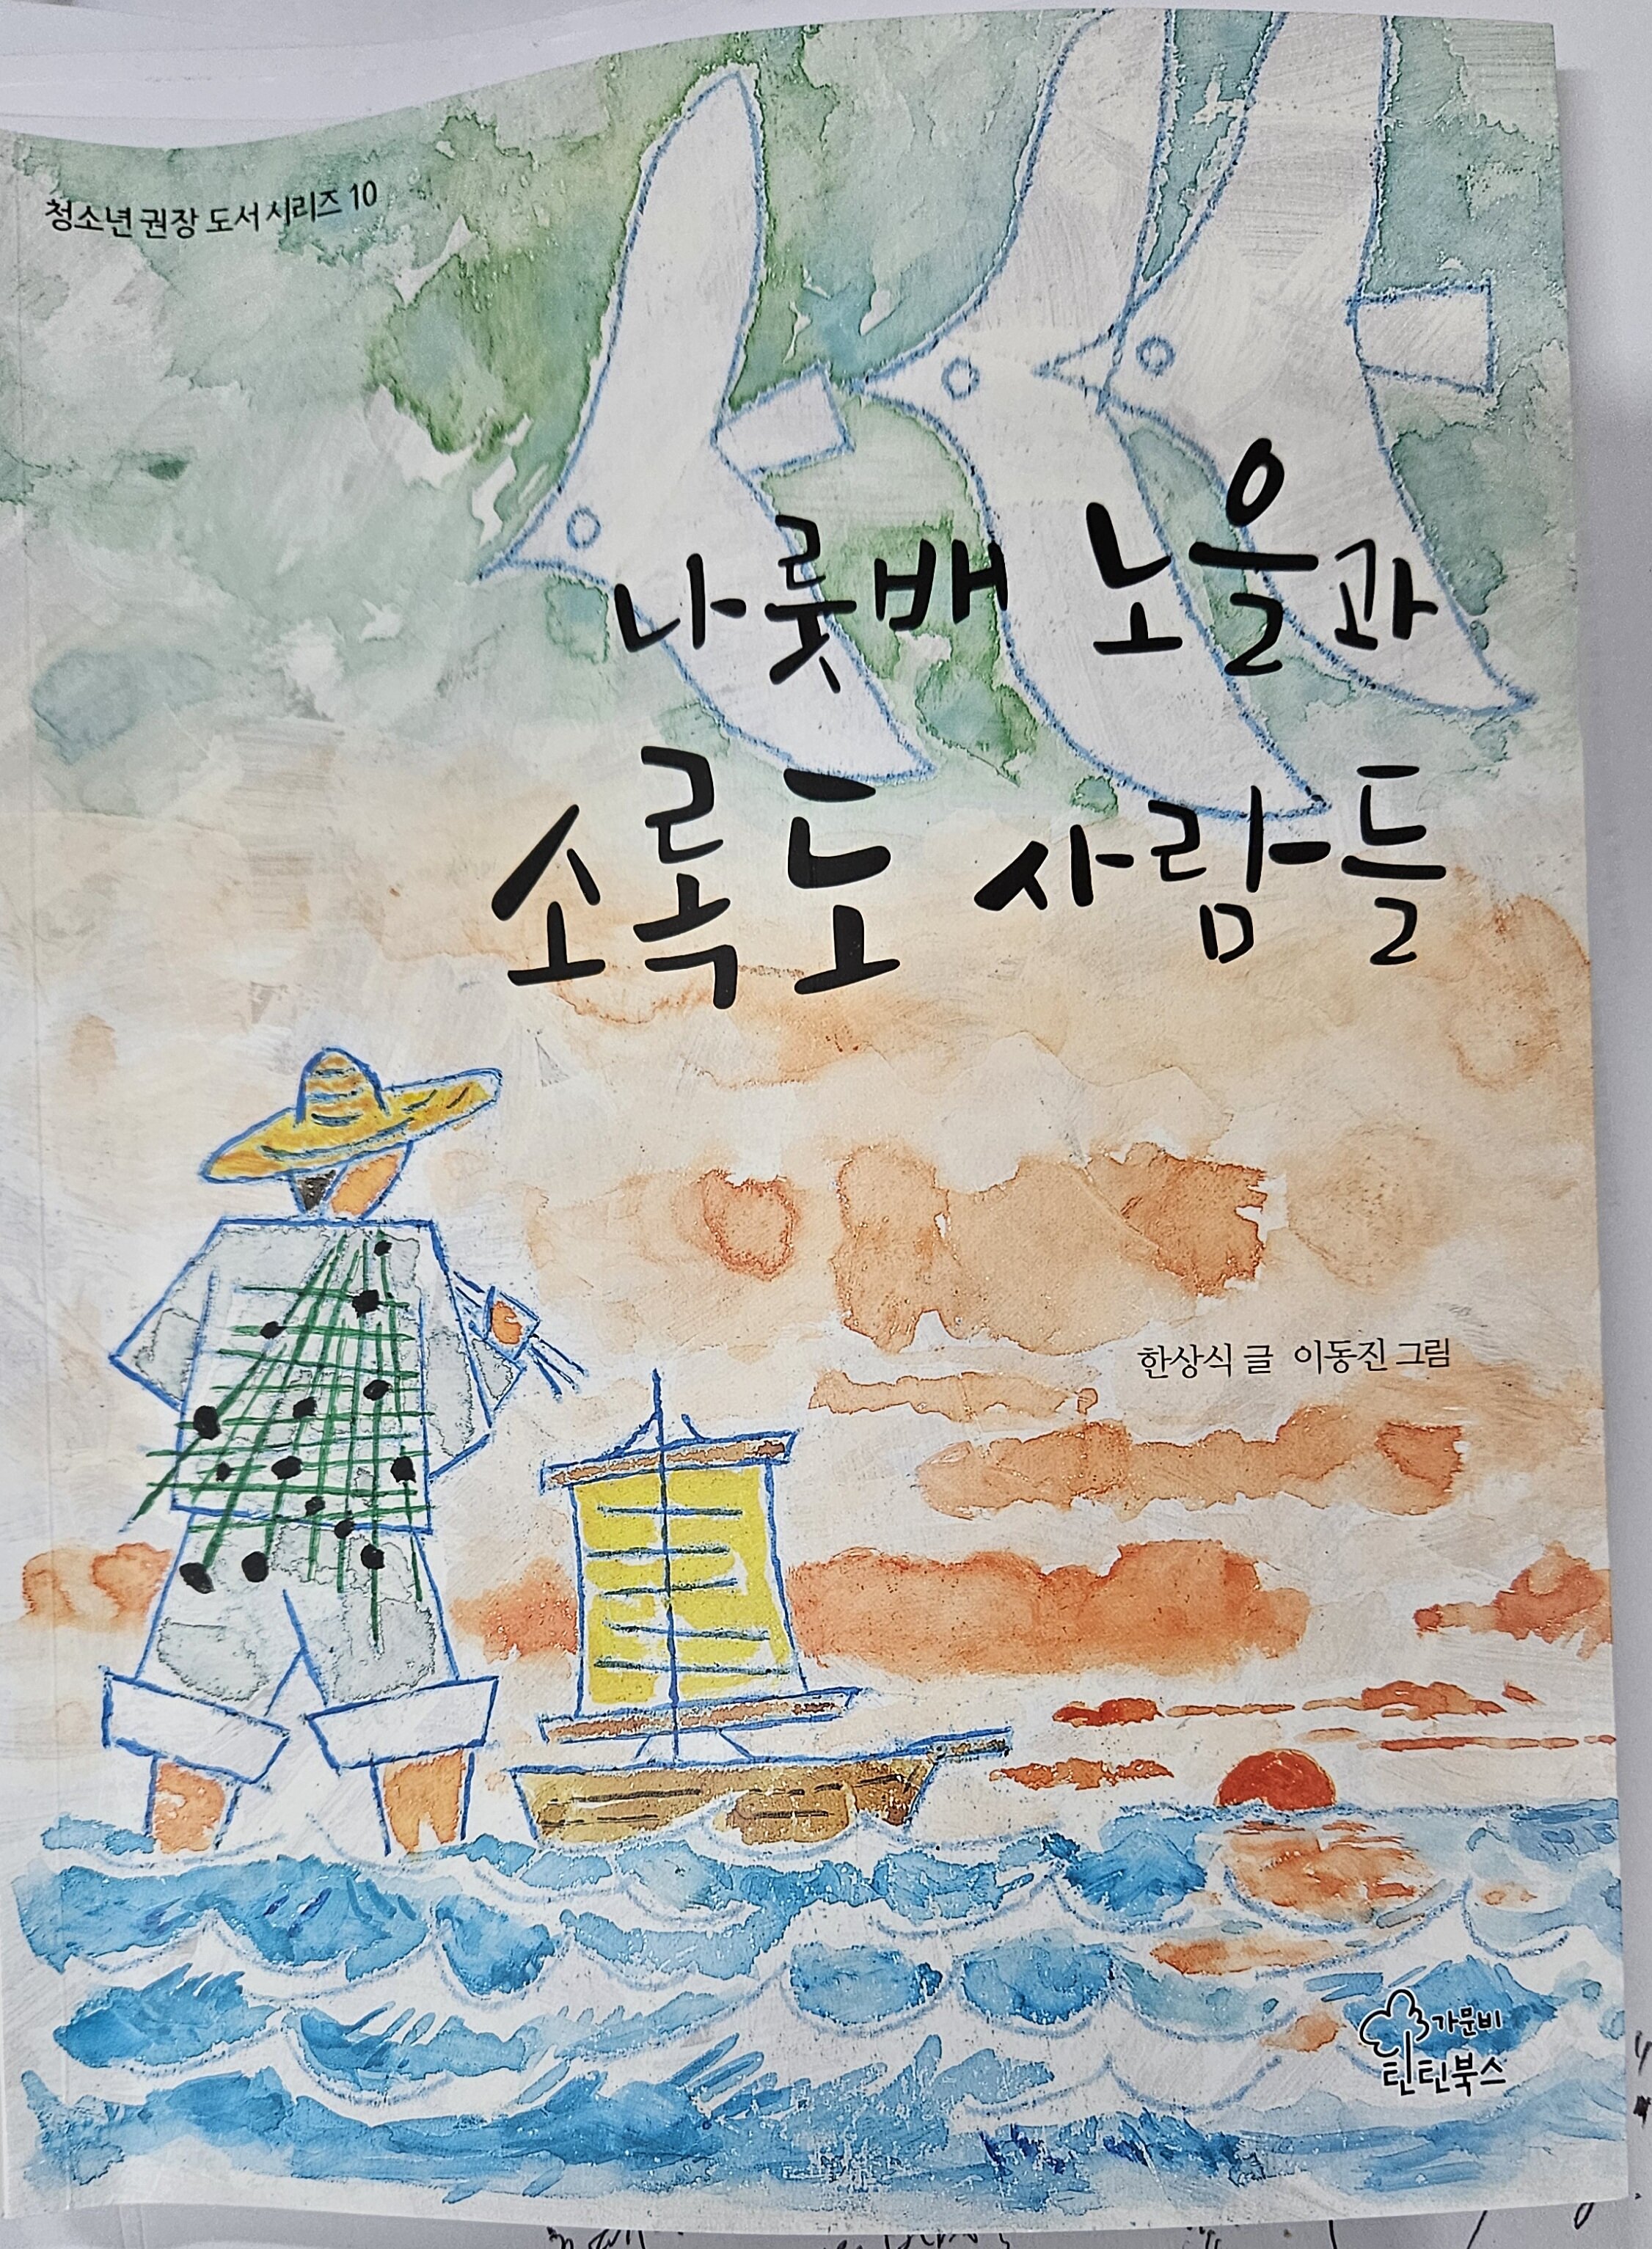 청소년 권장 도서 시리즈 10
나룻배 노을과
소록도 사람들
한상식 글 이동진 그림
가문비
틴틴북스